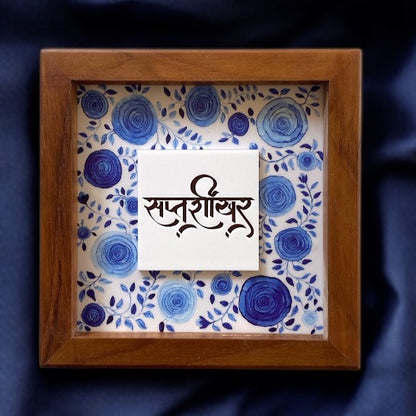 सप्तशीखर